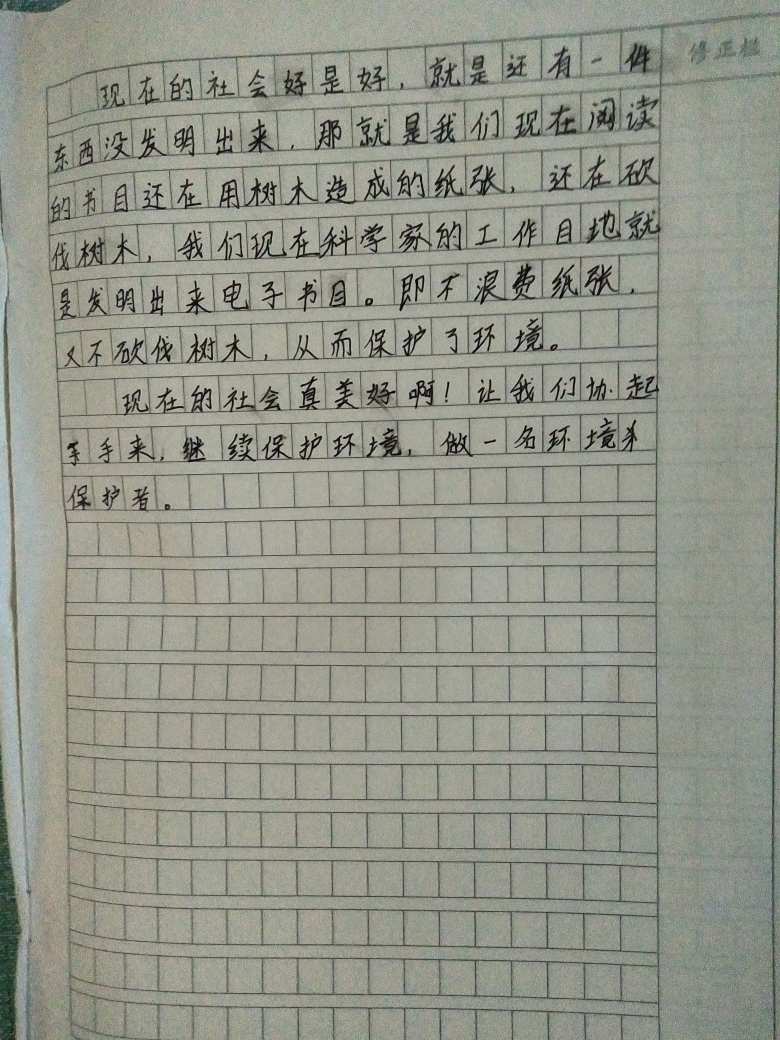 修正栏
现在的社会好是好，就是还有一件
东西没发明出来，那就是我们现在阅读
的书目还在用树木造成的纸张，还在砍
伐树木，我们现在科学家的工作目地就
是发明出来电子书目。即不浪费纸张，
又不砍伐树木，从而保护了环境。
现在的社会真美好啊！让我们协起
手手来，继续保护环境，做一名环境
保护者。